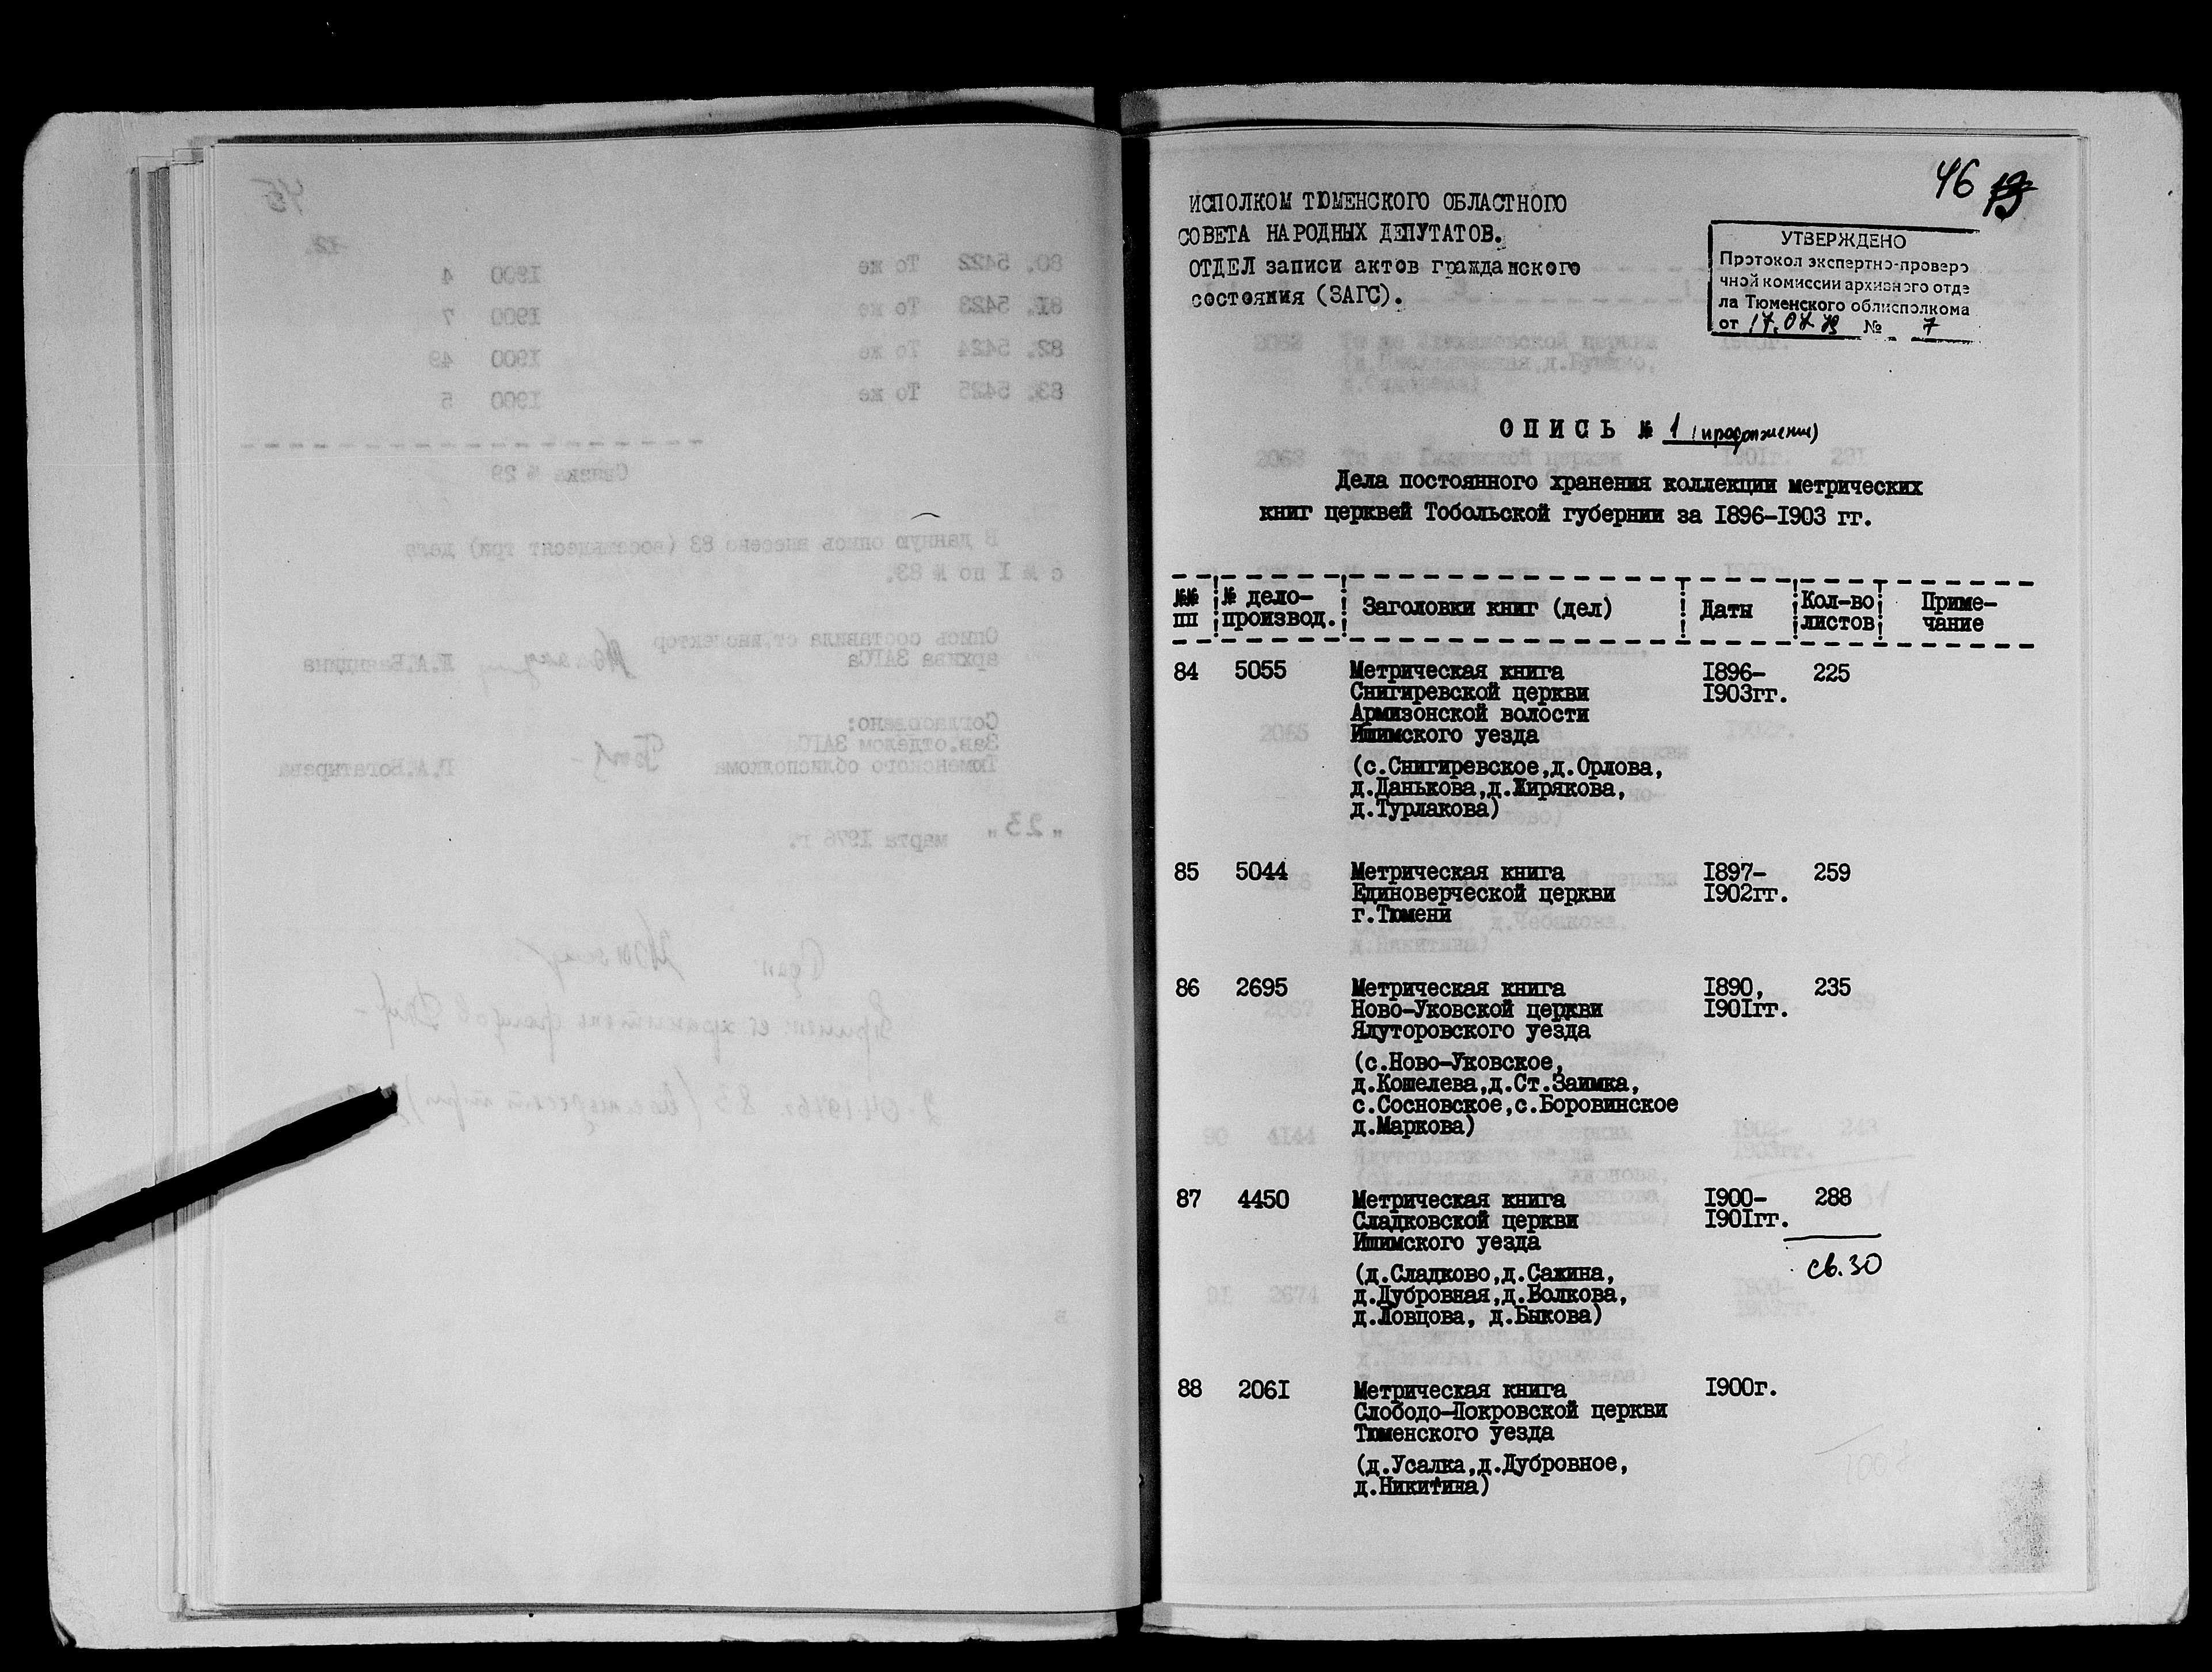 46 13
ИСПОЛКОМ ТЮМЕНСКОГО ОБЛАСТНОГО
СОВЕТА НАРОДНЫХ ДЕПУТАТОВ.
ОТДЕЛ записи актов гражданского
состояния (ЗАГС).
УТВЕРЖДЕНО
Протокол экспертно-проверо
чной комиссии архивного отде
ла Тюменского облисполкома
от № 7
ОПИСЬ № 1 (продолжение)
Дела постоянного хранения коллекции метрических
книг церквей Тобольской губернии за I896-I903 гг.
№№ пп № дело-производ. Заголовки книг (дел) Даты Кол-во листов Приме-чание
84 5055 Метрическая книга I896- 225
Снигиревской церкви I903гг.
Армизонской волости
Ишимского уезда
(с.Снигиревское,д.Орлова,
д.Данькова,д.Жирякова,
д.Турлакова)
85 5044 Метрическая книга I897- 259
Единоверческой церкви I902гг.
г.Тюмени
86 2695 Метрическая книга I890, 235
Ново-Уковской церкви I90Iгг.
Ялуторовского уезда
(с.Ново-Уковское,
д.Кошелева,д.Ст.Заимка,
с.Сосновское,с.Боровинское
д.Маркова)
87 4450 Метрическая книга I900- 288
Сладковской церкви I90Iгг.
Ишимского уезда
св.30
(д.Сладково,д.Сажина,
д.Дубровная,д.Волкова,
д.Ловцова, д.Быкова)
88 206I Метрическая книга I900г.
Слободо-Покровской церкви
Тюменского уезда
(д.Усалка,д.Дубровное,
д.Никитина)